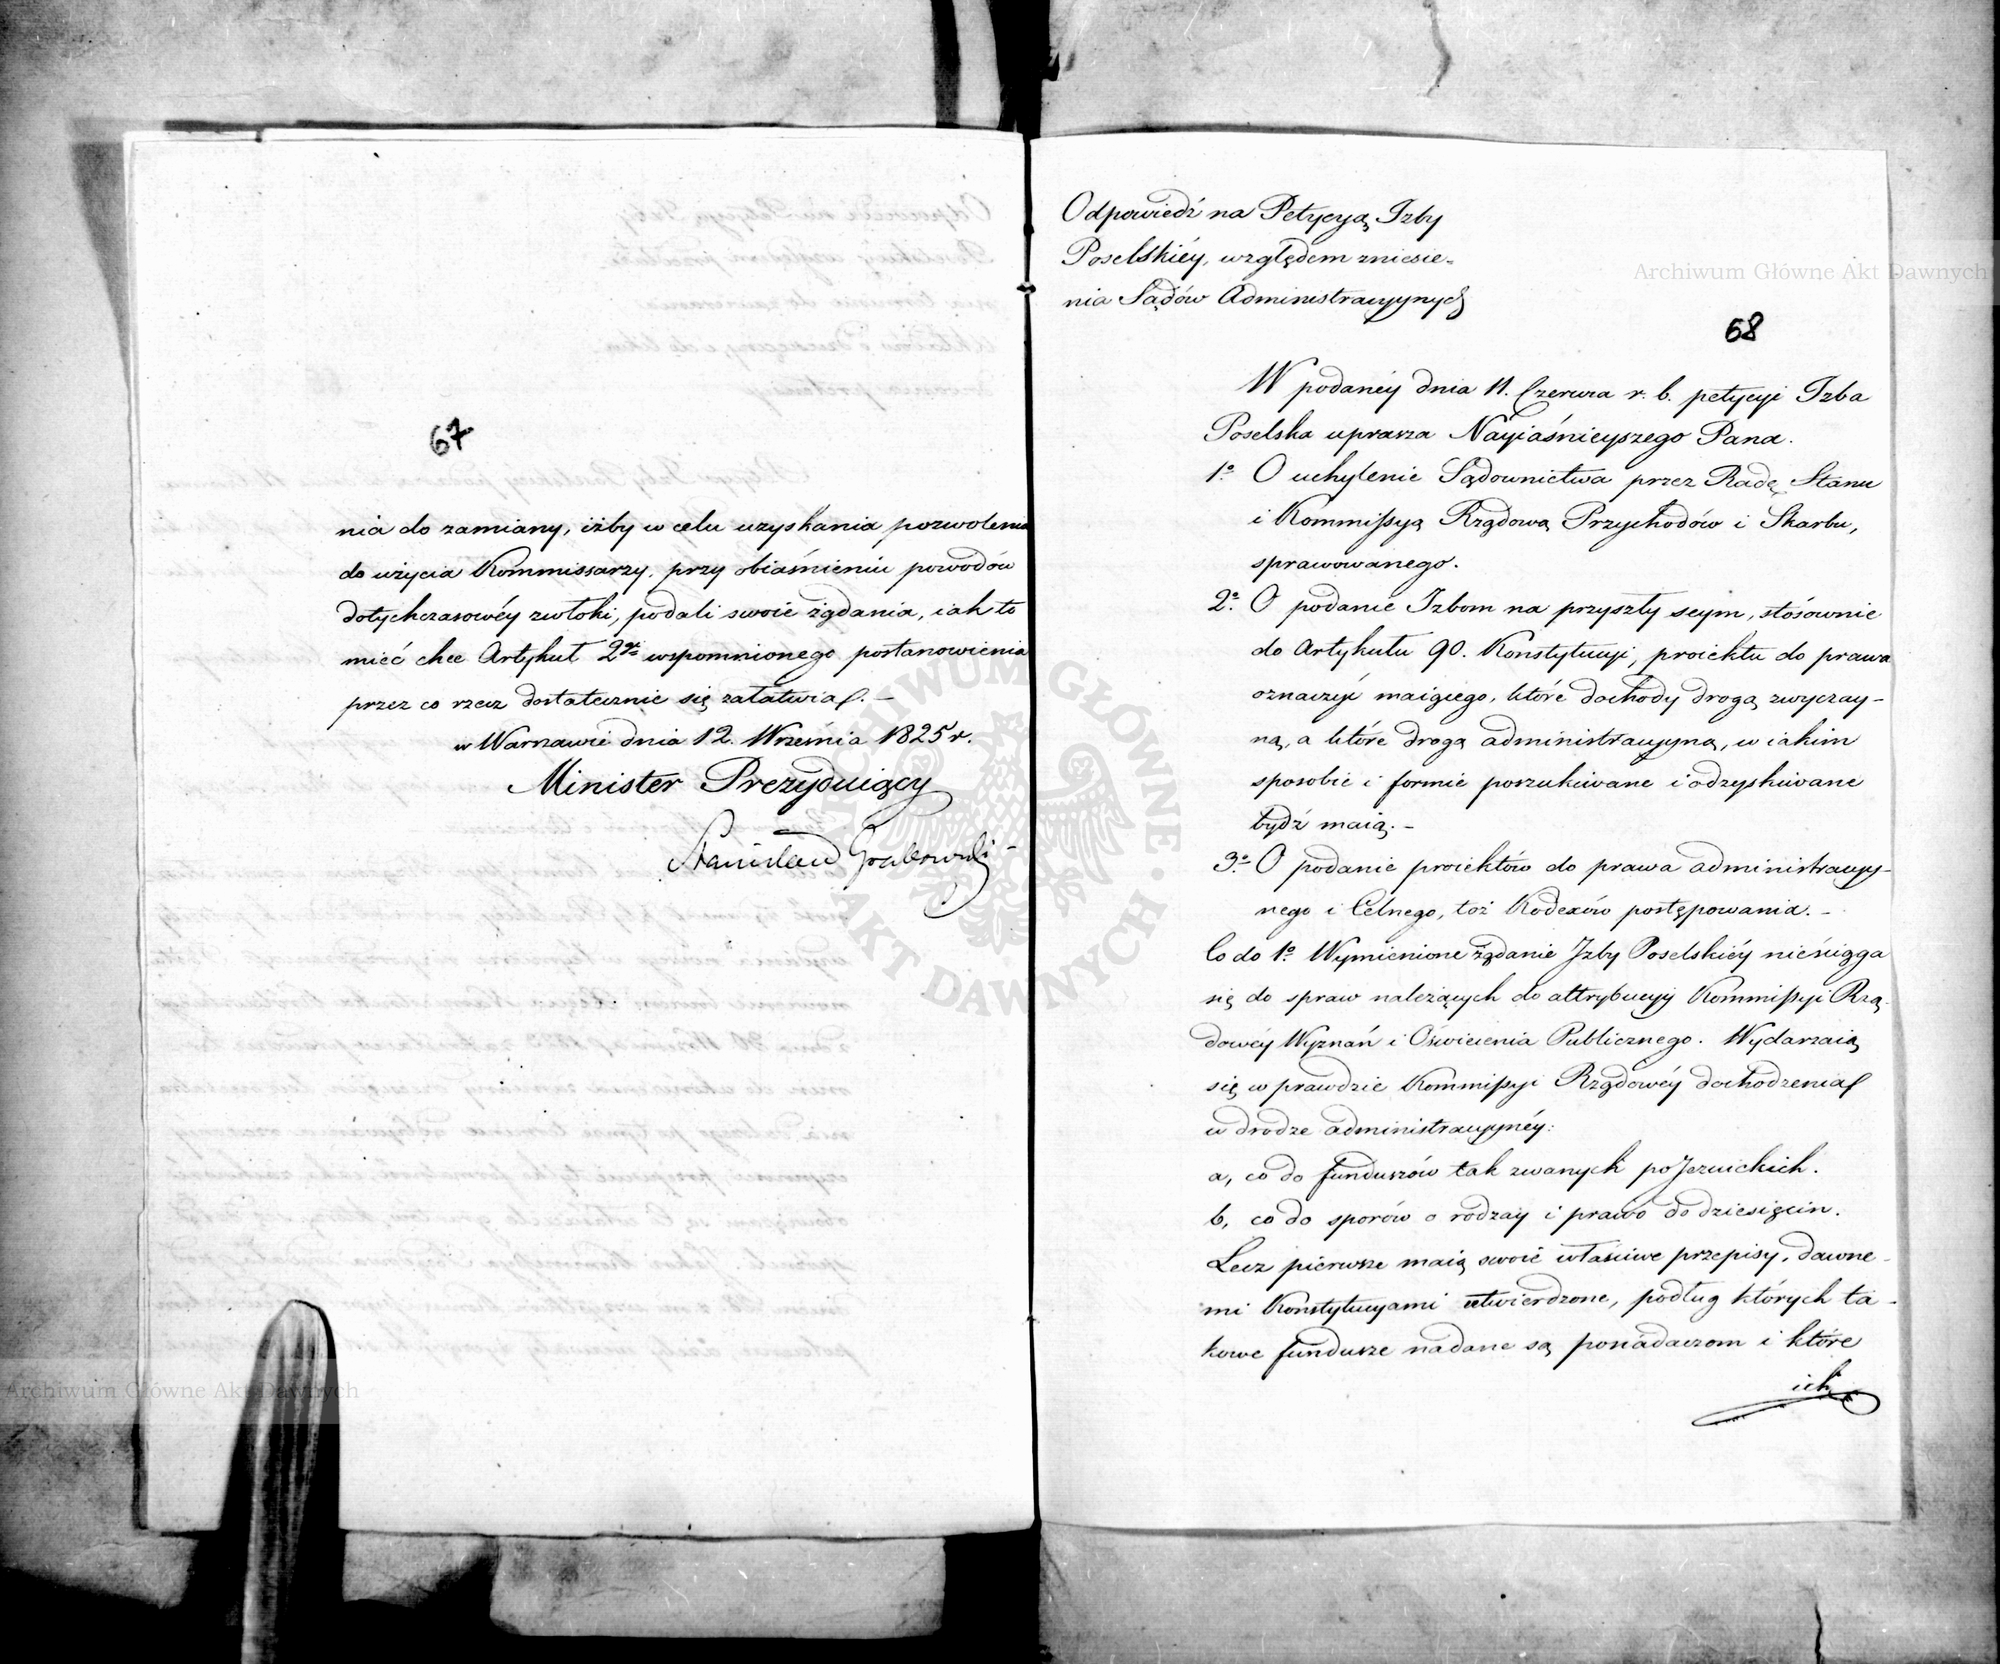 67
nia do zamiany, iżby w celu uzyskania pozwolenia
do użycia Kommissarzy, przy obiaśnieniu powodów
dotychczasowéy zwłoki, podali swoie żądania, iak to
mieć chce Artykuł 2gi wspomnionego postanowienia
przez co rzecz dostatecznie się załatwia. —
w Warszawie dnia 12. Września 1825 r.
Minister Prezyduiący
Stanisław Grabowski
Odpowiedź na Petycyą Izby
Poselskiéy, względem zniesie-
nia Sądów Administracyynych
68
W podanéy dnia 11. Czerwca r. b. petycyi Izba
Poselska uprasza Nayiaśnieyszego Pana.
1o. O uchylenie Sądownictwa przez Radę Stanu
i Kommissyą Rządową Przychodów i Skarbu,
sprawowanego.
2o. O podanie Izbom na przyszły seym, stósownie
do Artykułu 90. Konstytucyi, proiektu do prawa
oznaczyć maiącego, które dochody drogą zwyczay-
ną, a które drogą administracyyną, w iakim
sposobie i formie poszukiwane i odzyskiwane
bydź maią. —
3o. O podanie proiektów do prawa administracyy-
nego i Celnego, toż Kodexów postępowania. —
Co do 1o. Wymienione żądanie Izby Poselskiéy nieściąga
się do spraw należących do attrybucyy Kommissyi Rzą-
dowéy Wyznań i Oświecenia Publicznego. Wydarzaią
się w prawdzie Kommissyi Rządowéy dochodzenia
w drodze administracyynéy:
a, co do funduszów tak zwanych poJezuickich.
b, co do sporów o rodzay i prawo do dziesięcin.
Lecz pierwsze maią swoie właściwe przepisy, dawne-
mi Konstytucyami utwierdzone, podług których ta-
kowe fundusze nadane są posiadaczom i które
ich
Archiwum Główne Akt Dawnych
Archiwum Główne Akt Dawnych
ARCHIWUM GŁÓWNE AKT DAWNYCH